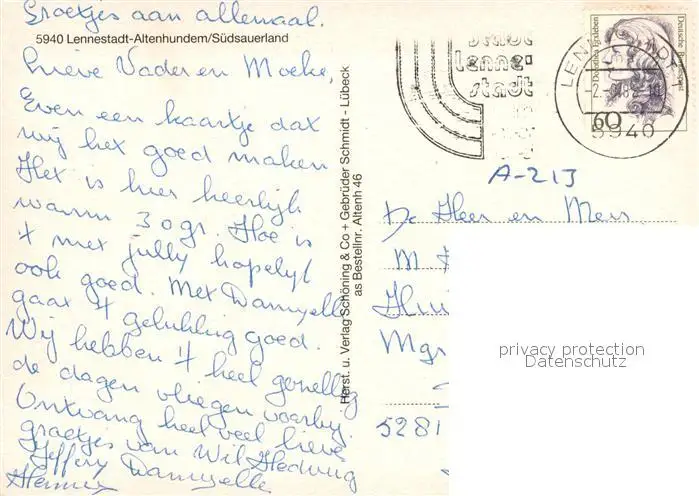 Groetjes aan allemaal.
5940 Lennestadt-Altenhundem/Südsauerland
Lieve Vader en Moeke,
Even een kaartje dat
wij het goed maken
Het is hier heerlijk
warm 30 gr. Hoe is
't met jully hopelijk
ook goed. Met Dannyelle
gaat 't gelukkig goed.
Wij hebben 't heel gezellig
de dagen vliegen voorby.
Ontvang heel veel lieve
groetjes van Wil Hedwig
Jeffery Dannyelle
Herst. u. Verlag Schöning & Co + Gebrüder Schmidt - Lübeck
as Bestellnr. Altenh 46
stadt
lenne-
stadt
Deutsche Bundespost
Dorothea Erxleben
60
5940
A-213
De Heer en Mevr.
M
Mgr
5281
privacy protection
Datenschutz